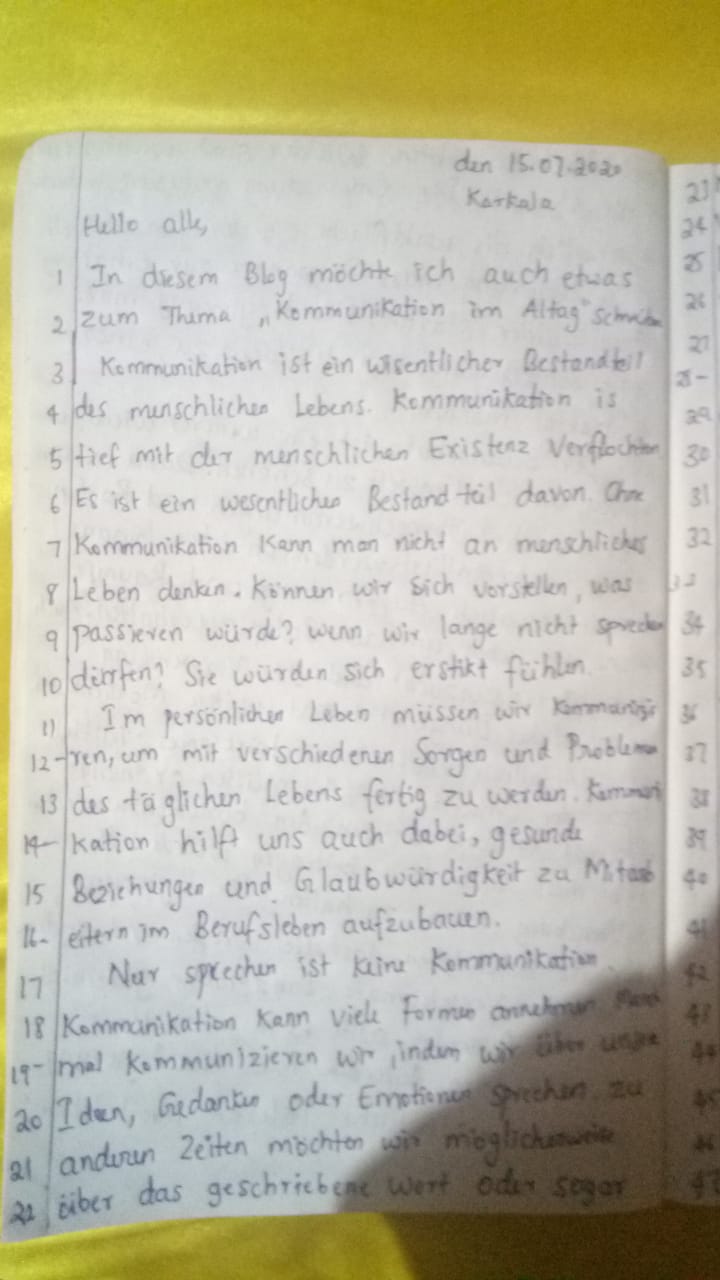 den 15.07.2020
Karkala
Hello alle,
1 In diesem Blog möchte ich auch etwas
2 zum Thema „Kommunikation im Altag" Schreiben
3 Kommunikation ist ein wisentlicher Bestandteil
4 des menschlichen Lebens. Kommunikation is
5 tief mit der menschlichen Existenz verflochten
6 Es ist ein wesentlicher Bestandteil davon. Ohne
7 Kommunikation Kann man nicht an menschliches
8 Leben denken. Können wir Sich vorstellen, was
9 passieren würde? wenn wir lange nicht sprechen
10 dürfen? Sie würden sich erstikt fühlen.
11 Im persönlichen Leben müssen wir Kommunizie
12 ren, um mit verschiedenen Sorgen und Problemen
13 des täglichen Lebens fertig zu werden. Kommuni
14 kation hilft uns auch dabei, gesunde
15 Beziehungen und Glaubwürdigkeit zu Mitarb
16 eitern im Berufsleben aufzubauen.
17 Nur sprechen ist keine Kommunikation.
18 Kommunikation kann viele Formen annehmen. Manch
19 mal kommunizieren wir, indem wir über unsre
20 Ideen, Gedanken oder Emotionen sprechen. zu
21 anderen Zeiten möchten wir möglicherweise
22 über das geschriebene Wort oder sogar
23
24
25
26
27
28
29
30
31
32
33
34
35
36
37
38
39
40
41
42
43
44
45
46
47